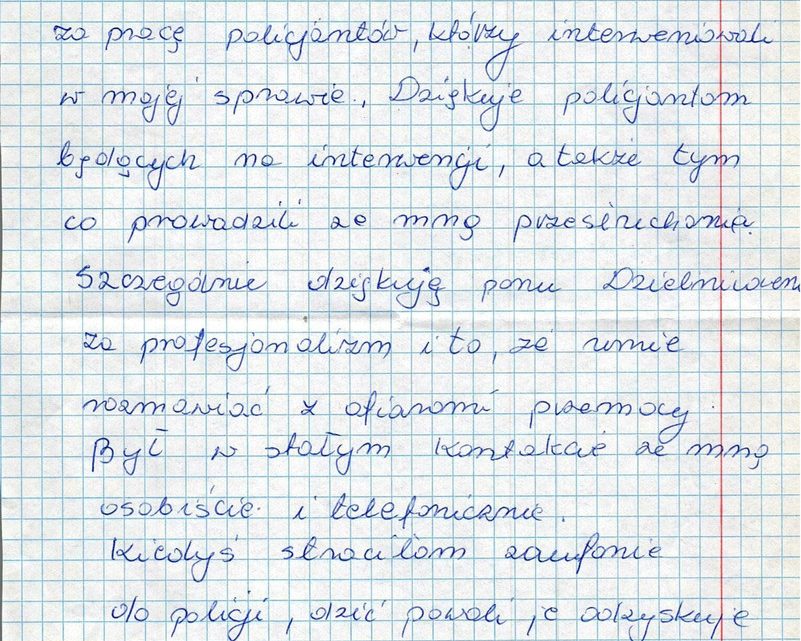 za pracę policjantów, którzy interweniowali
w mojej sprawie., Dziękuje policjantom
będących na interwencji, a także tym
co prowadzili ze mną przesłuchania.
Szczególnie dziękuję panu Dzielnicowemu
za profesjonalizm i to, że umie
rozmawiać z ofiarami przemocy.
Był w stałym kontakcie ze mną
osobiście i telefonicznie.
Kiedyś straciłam zaufanie
do policji, dziś powoli je odzyskuje